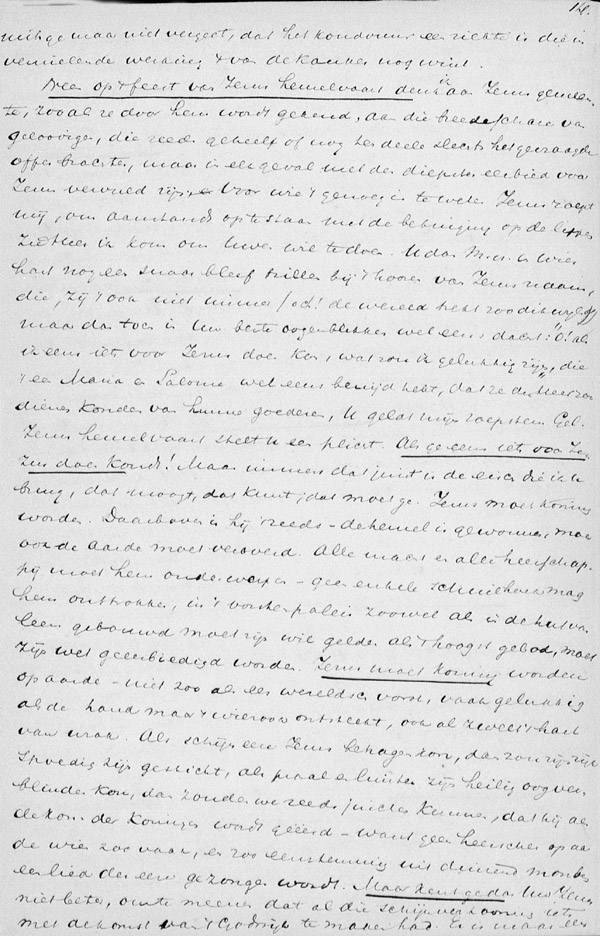 14.
maar niet vergeet, dat het een ziekte is die in
vernielende werking van de kanker nog wint.
Neen op 't feest van Jezus hemelvaart denk ik aan Jezus gemeen-
te, zooals ze door hem wordt gekend, aan die breede schare van
geloovigen, die reeds geheel of nog ten deele slechts het gevraagde
offer brachten, maar in elk geval met den diepsten eerbied voor
Jezus vervuld zijn, Voor wie 't genoeg is te weten Jezus roept
mij, om aanstonds op te staan met de betuiging op de lippen
Zie Heer ik kom om Uwen wil te doen. U dan in wier
hart nog een snaar bleef trillen bij 't hooren van Jezus naam,
die, zij 't ook niet immer (och! de wereld trekt zoo dikwijls)
maar dan toch in Uw beste oogenblikken wel eens dacht: "O! als
ik eens iets voor Jezus doen kon, wat zou ik gelukkig zijn", die
Maria en Salome wel eens benijd hebt, dat ze den Heer
dienen konden van hunne goederen, U geldt mijn roepstem Gel.
Jezus hemelvaart stelt U een plicht. Als ge eens iets voor Je-
zus doen kondt! Maar immers dat juist is de eisch die ik U
breng, dat moogt, dat kunt, dat moet ge. Jezus moet koning
worden. Daarboven is hij 't reeds - de hemel is gewonnen, maar
ook de aarde moet veroverd. Alle macht en alle heerschap-
pij moet hem onderworpen - geen enkele schuilhoek mag
hem onttrokken, in 't vorstenpaleis zoowel als in de hut van
leem gebouwd moet zijn wil gelden als 't hoogst gebod, moet
zijn wet geëerbiedigd worden. Jezus moet koning worden
op aarde - niet zoo als een wereldsch vorst, vaak gelukkig
als de hand maar 't wierook ontsteekt, ook al zweert 't hart
van wraak. Als schijn een Jezus behagen kon, dan zou zijn rijk
spoedig zijn gesticht, als praal en luister zijn heilig oog ver-
blinden kon, dan zouden we reeds juichen kunnen, dat hij als
de koning der koningen wordt geëerd - want geen heerscher op aarde
de wien zoo vaak, en zoo eenstemmig uit duizend monden
een lied der eere gezongen wordt. Maar kent ge dan Uw Jezus
niet beter, om te meenen dat al die schijnvertooning iets
met de komst van 't Godsrijk te maken had. Er is maar een